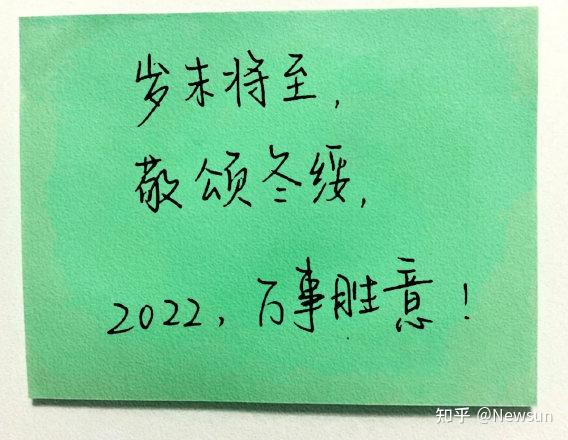 岁末将至,
敬颂冬绥,
2022,百事胜意!
知乎 @Newsun